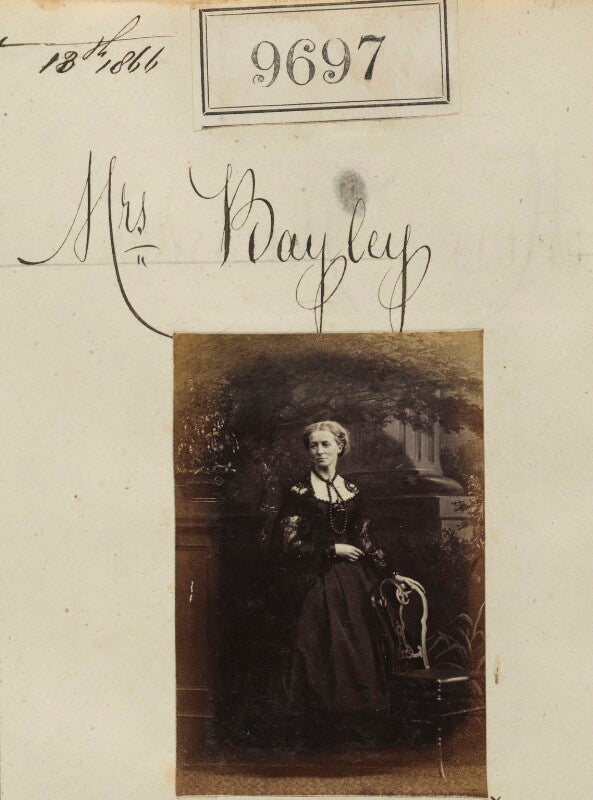 13th 1866
9697
Mrs Bayley